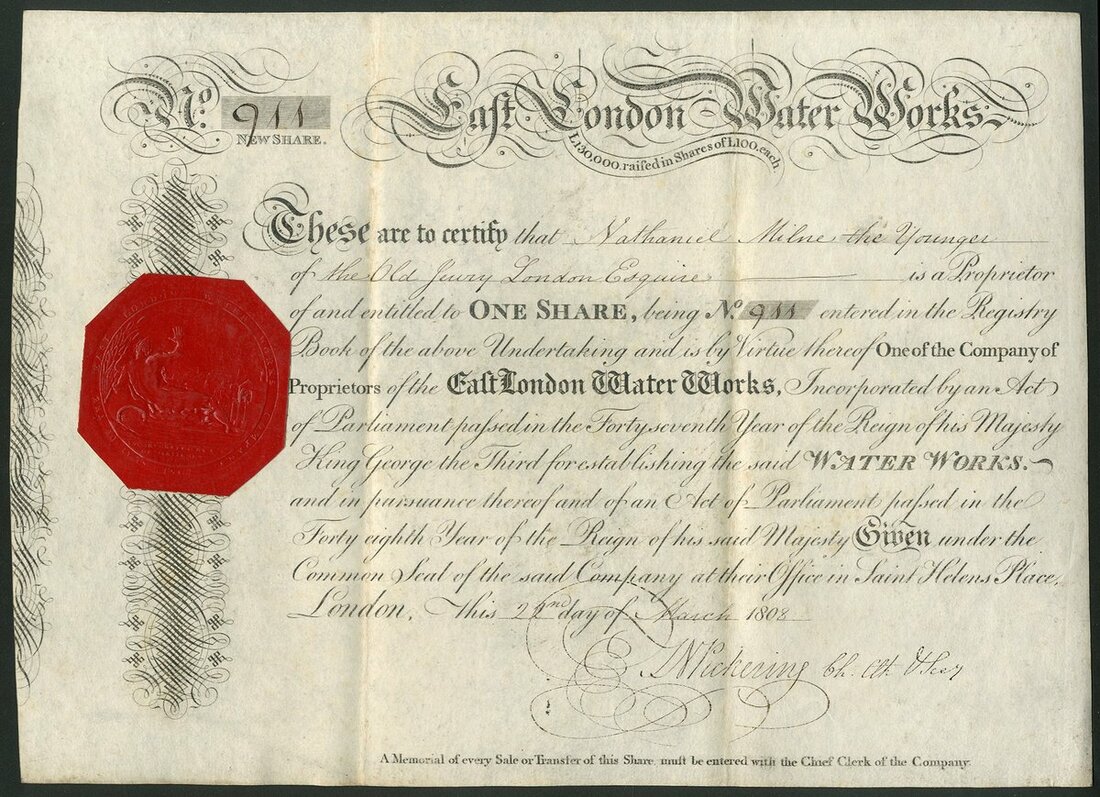 No. 911
NEW SHARE.
East London Water Works.
L130,000. raised in Shares of L100. each
These are to certify that Nathaniel Milne the Younger
of the Old Jewry London Esquire is a Proprietor
of and entitled to ONE SHARE, being No. 911 entered in the Registry
Book of the above Undertaking and is by Virtue thereof One of the Company of
Proprietors of the East London Water Works, Incorporated by an Act
of Parliament passed in the Forty seventh Year of the Reign of his Majesty
King George the Third for establishing the said WATER WORKS.
and in pursuance thereof and of an Act of Parliament passed in the
Forty eighth Year of the Reign of his said Majesty Given under the
Common Seal of the said Company at their Office in Saint Helens Place,
London, This day of March 1808
Pickering Ch. Clk & Secy
A Memorial of every Sale or Transfer of this Share, must be entered with the Chief Clerk of the Company.